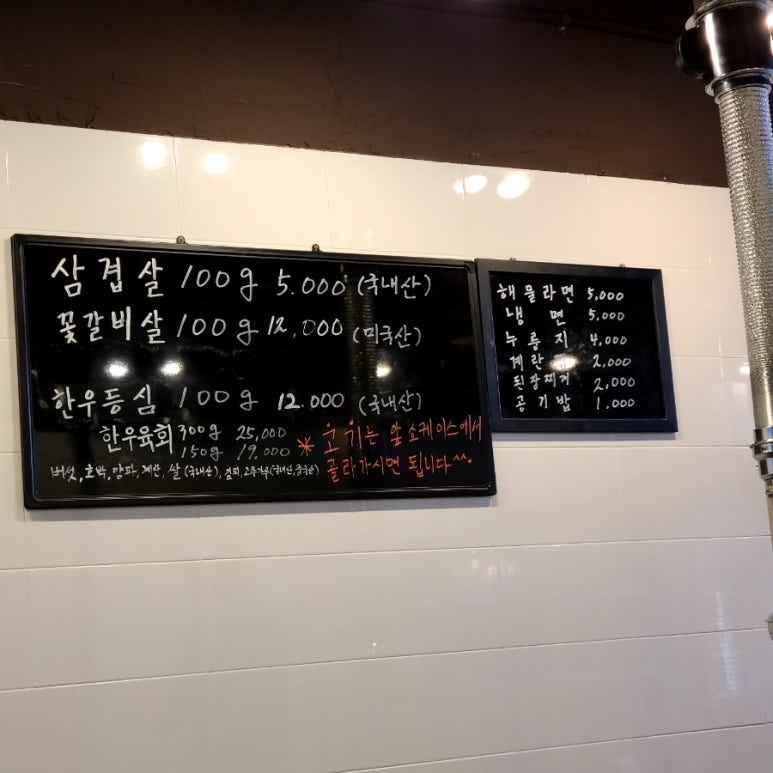 삼겹살 100g 5.000 (국내산)
꽃갈비살 100g 12,000 (미국산)
한우등심 100g 12.000 (국내산)
한우육회 300g 25,000
150g 19,000
버섯, 호박, 양파, 계란, 쌀(국내산), 김치, 고추가루(국내산,중국산)
* 고기는 앞 쇼케이스에서
골라가시면 됩니다^^.
해물라면 5,000
냉면 5,000
누룽지 4,000
계란 2,000
된장찌개 2,000
공기밥 1,000